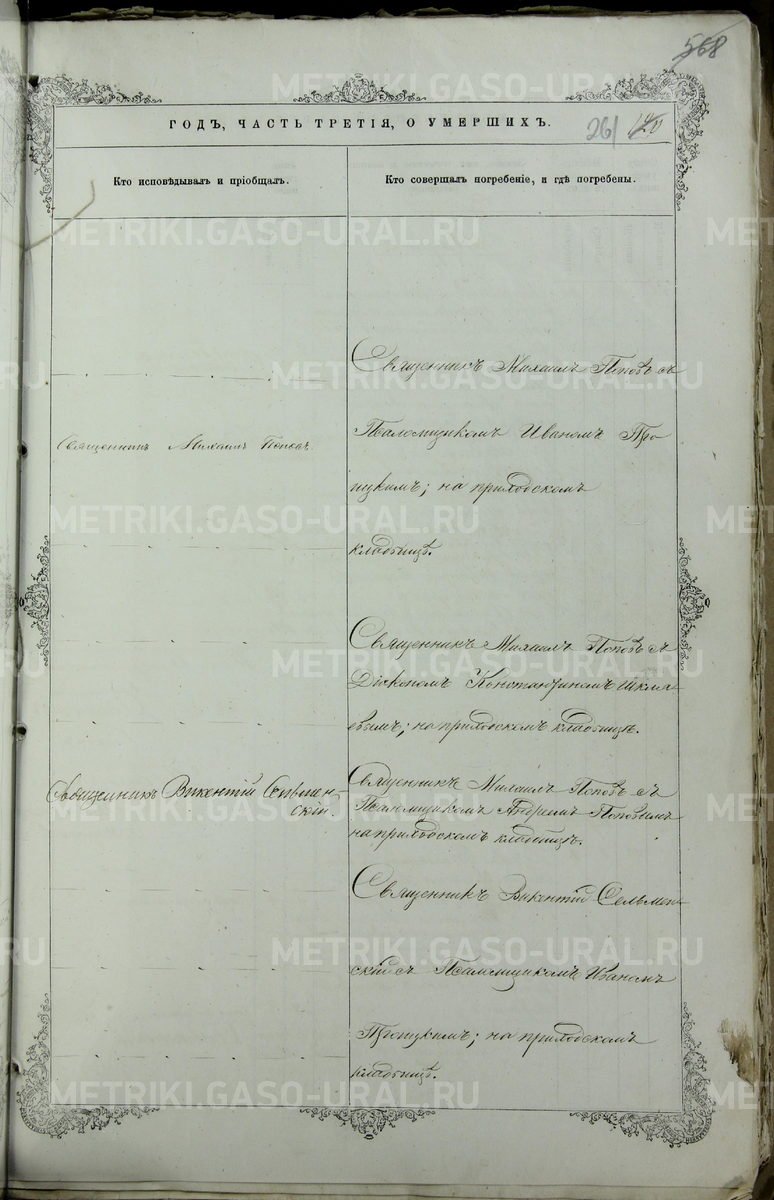 568
ГОДЪ, ЧАСТЬ ТРЕТІЯ, О УМЕРШИХЪ.
261
Кто исповѣдывалъ и пріобщалъ.
Кто совершалъ погребеніе, и гдѣ погребены.
Священникъ Михаилъ Поповъ
Священникъ Викентій
скій.
Священникъ Михаилъ Поповъ съ
Псаломщикомъ Иваномъ Тро
ицкимъ; на приходскомъ
кладбищѣ.
Священникъ Михаилъ Поповъ съ
Діакономъ Константиномъ Шкля
евымъ; на приходскомъ кладбищѣ.
Священникъ Михаилъ Поповъ съ
Псаломщикомъ Андреемъ Поповымъ
на приходскомъ кладбищѣ.
Священникъ Викентій Сельмен-
скій съ Псаломщикомъ Иваномъ
Троицкимъ; на приходскомъ
кладбищѣ.
METRIKI.GASO-URAL.RU